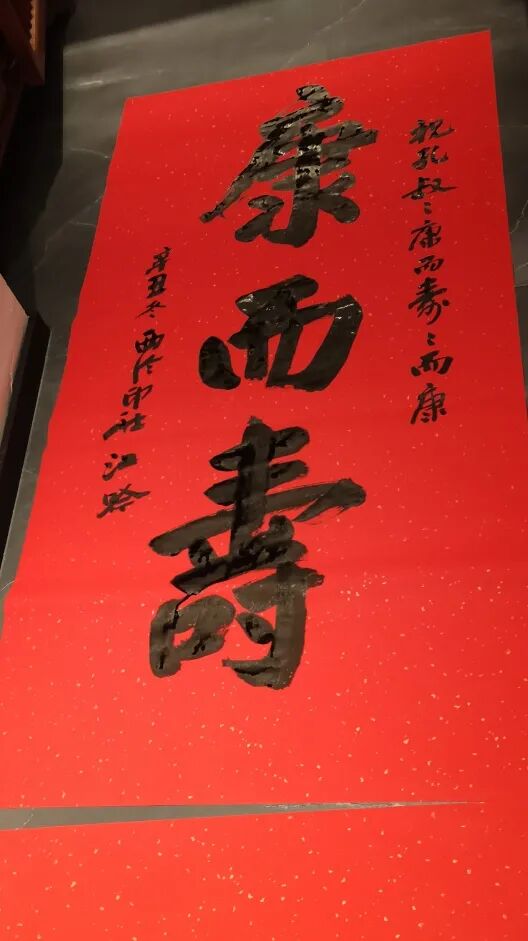 祝孔叔〻康而壽〻而康
康而壽
辛丑冬西泠印社江吟